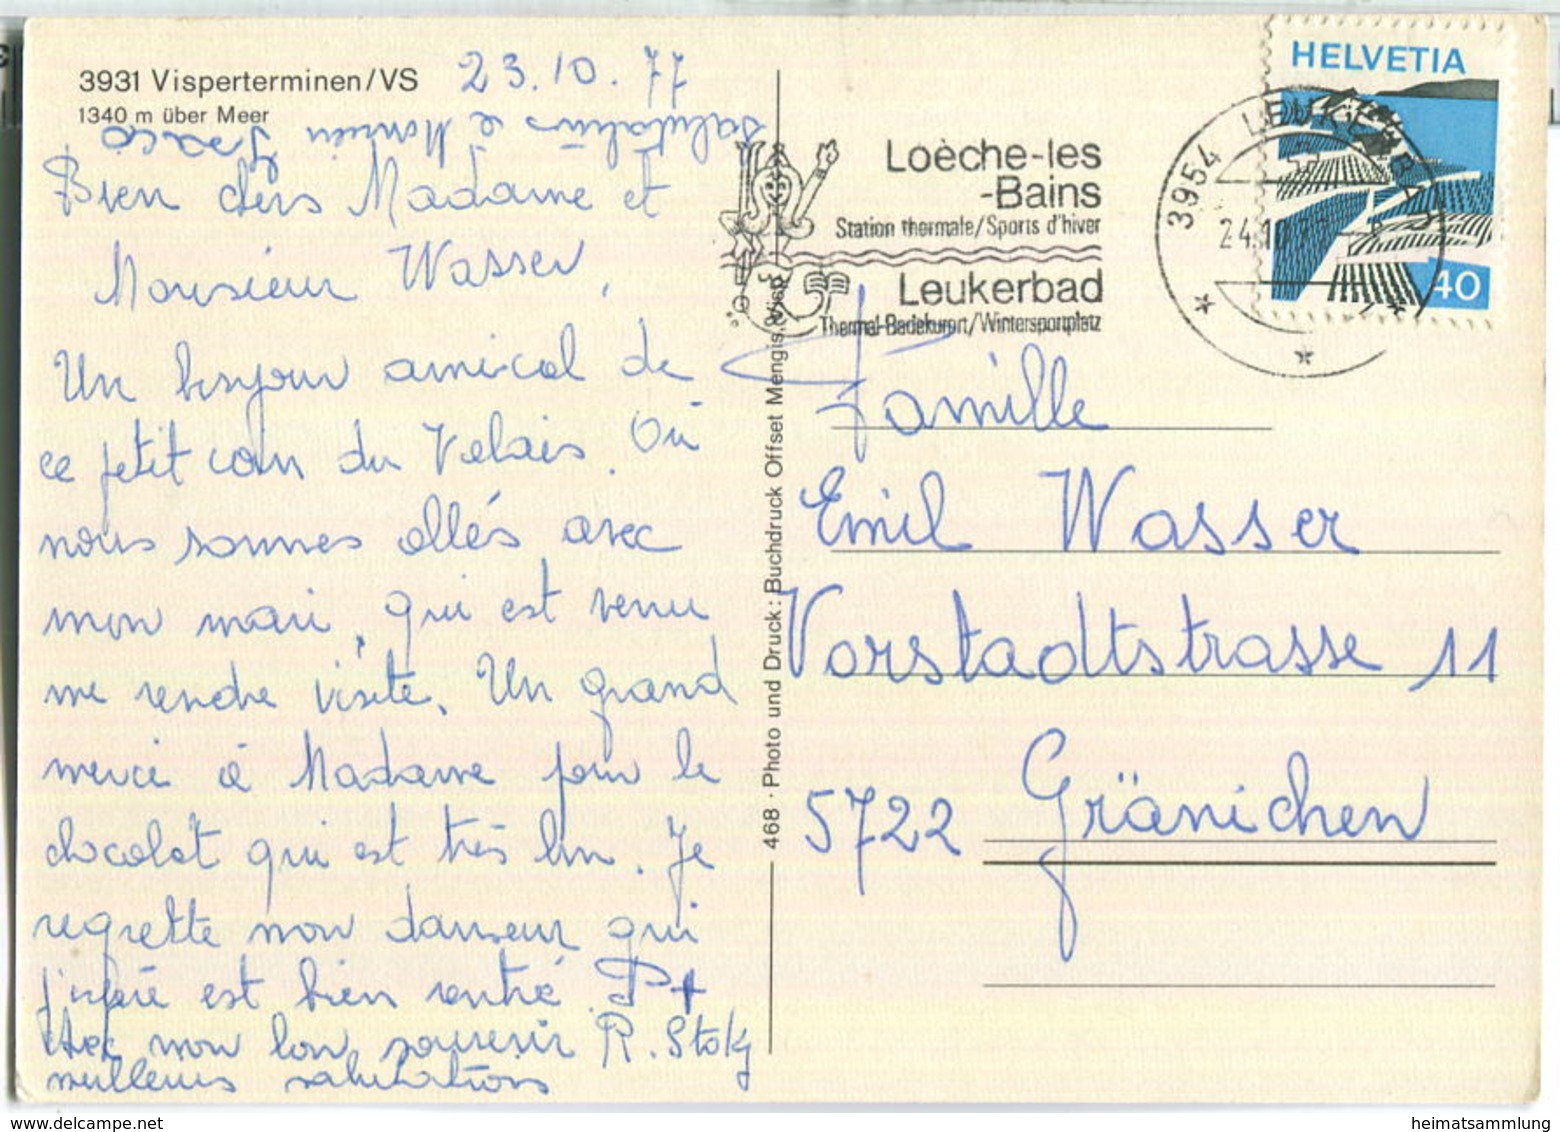 3931 Visperterminen/VS
1340 m über Meer
23.10.77
salutations à Monsieur
Bien chers Madame et
Monsieur Wasser,
Un bonjour amical de
ce petit coin du Valais. Où
nous sommes allés avec
mon mari, qui est venu
me rendre visite. Un grand
merci à Madame pour le
chocolat qui est très bon. Je
regrette mon danseur qui
j'espère est bien rentré. P +
Avec mon bon souvenir R. Stoky
meilleures salutations
468 · Photo und Druck: Buchdruck Offset Mengis, Visp
Loèche-les
-Bains
Station thermale/Sports d'hiver
Leukerbad
Thermal-Badekurort/Wintersportplatz
3954 LEUKERBAD
24.10.77
HELVETIA
40
Famille
Emil Wasser
Vorstadtstrasse 11
5722 Gränichen
heimatsammlung